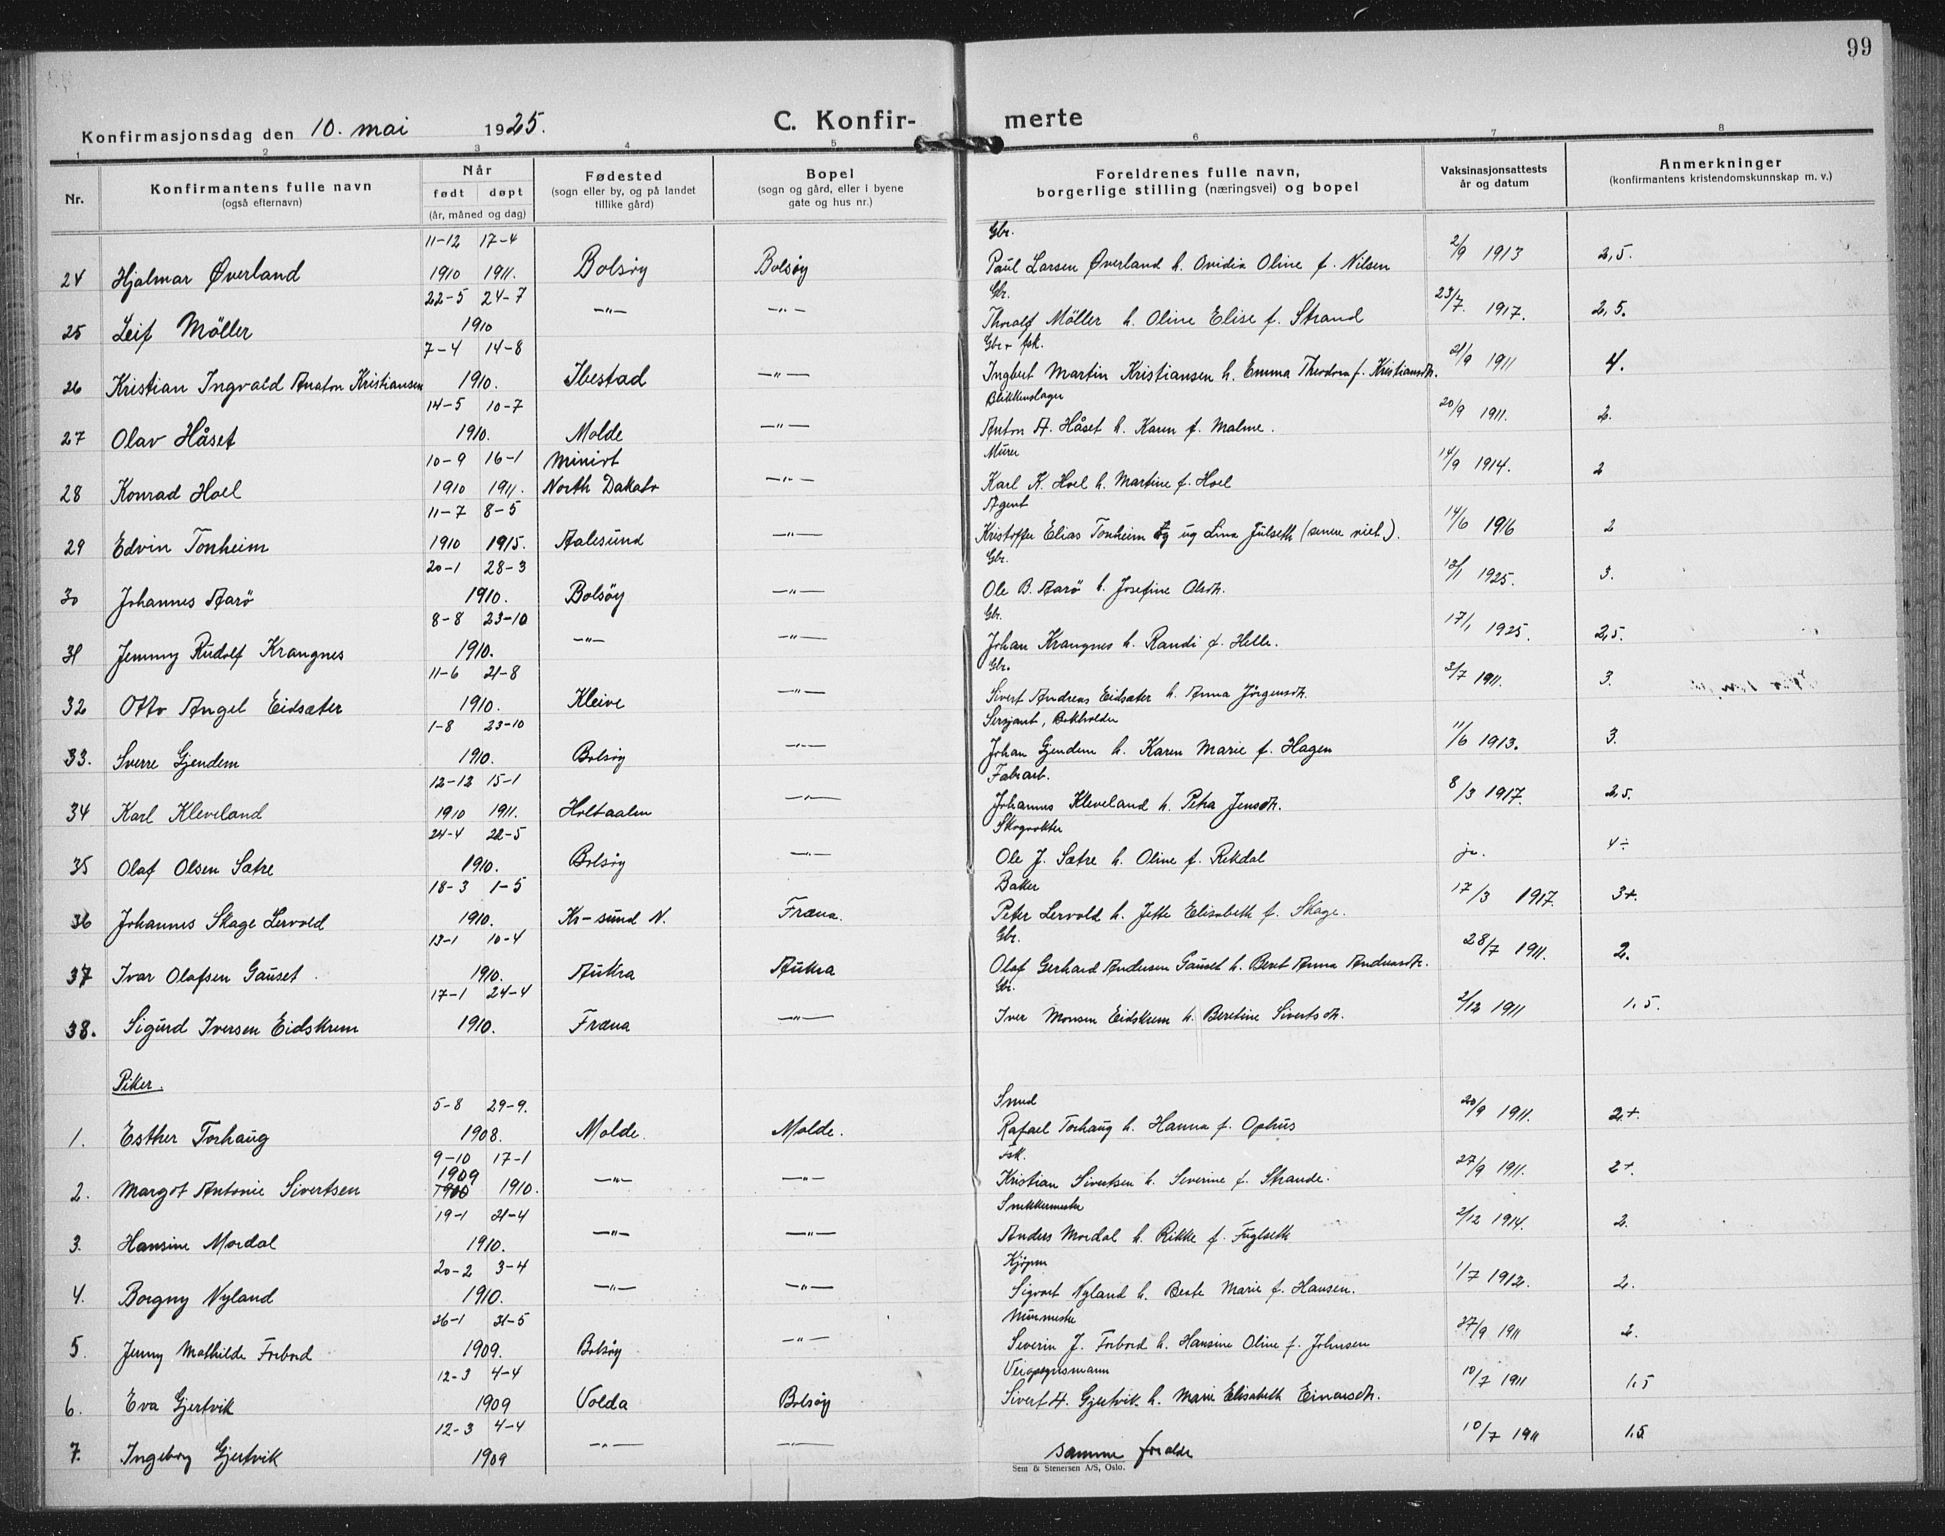 99
Konfirmasjonsdag den 10. mai 1925. C. Konfir- merte
1 2 3 4 5 6 7 8
Nr. Konfirmantens fulle navn (også efternavn) Når født døpt (år, måned og dag) Fødested (sogn eller by, og på landet tillike gård) Bopel (sogn og gård, eller i byene gate og hus nr.) Foreldrenes fulle navn, borgerlige stilling (næringsvei) og bopel Vaksinasjonsattests år og datum Anmerkninger (konfirmantens kristendomskunnskap m. v.)
11-12 17-4 Gbr.
24 Hjalmar Øverland 1910 1911. Bolsøy Bolsøy Paul Larsen Øverland h. Ovidia Oline f. Nilsen 2/9 1913 2,5.
22-5 24-7 Gbr.
25 Leif Möller 1910 -"- -"- Thoralf Möller h. Oline Elise f. Strand 23/7 1917. 2,5.
7-4 14-8 Gbr + fsk.
26 Kristian Ingvald Anton Kristiansen 1910. Ibestad -"- Ingbert Martin Kristiansen h. Emma Theodora f. Kristiansdtr. 21/9 1911 4.
14-5 10-7 Blikkenslager
27 Olav Håset 1910. Molde -"- Anton A. Håset h. Karen f. Malme. 20/9 1911. 2.
10-9 16-1 Minirt Murer
28 Konrad Hoel 1910 1911. North Dakato -"- Karl K. Hoel h. Martine f. Hoel 14/9 1914. 2
11-7 8-5 Agent
29 Edvin Tonheim 1910 1915. Aalesund -"- Kristoffer Elias Tonheim og ug Lina Julseth (senere viet). 14/6 1916 2
20-1 28-3 Gbr.
30 Johannes Aarø 1910. Bolsøy -"- Ole B. Aarø h. Josefine Olsdtr. 12/1 1925. 3.
8-8 23-10 Gbr.
31 Jemmy Rudolf Krangnes 1910. -"- -"- Johan Krangnes h. Randi f. Helle. 17/1 1925. 2,5.
11-6 21-8 Gbr.
32 Otto Angel Eidsæter 1910. Kleive -"- Sivert Andreas Eidsæter h. Anna Jørgensdtr. 3/7 1911. 3.
1-8 23-10 Sersjant, Bokholder
33. Sverre Gjendem 1910. Bolsøy -"- Johan Gjendem h. Karen Marie f. Hagen 11/6 1913. 3.
12-12 15-1 Fabr.arb.
34 Karl Kleveland 1910 1911. Holtaalen -"- Johannes Kleveland h. Petra Jensdtr. 8/3 1917. 2,5.
24-4 22-5 Skogvokter
35 Olaf Olsen Sætre 1910. Bolsøy -"- Ole J. Sætre h. Oline f. Rekdal ja. 4÷
18-3 1-5 Baker
36 Johannes Skage Lervold 1910. Kr-sund N. Fræna. Peter Lervold h. Jette Elisabeth f. Skage. 17/3 1917. 3+.
13-1 10-4 Gbr.
37 Ivar Olafsen Gauset 1910. Aukra Aukra Olaf Gerhard Andersen Gauset h. Beret Anna Andersdtr. 28/7 1911. 2.
17-1 24-4 Gbr.
38. Sigurd Iversen Eidskrem 1910. Fræna -"- Iver Monsen Eidskrem h. Beretine Sivertsdtr. 2/12 1911 1,5.
Piker.
5-8 29-9. Smed
1. Esther Torhaug 1908. Molde. Molde. Rafael Torhaug h. Hanna f. Ophus 20/9 1911. 2+.
9-10 17-1 Fsk.
2. Margot Antonie Sivertsen 1909 1910. -"- -"- Kristian Sivertsen h. Severine f. Strande. 27/9 1911. 2+.
19-1 21-4 Snekkermester
3. Hansine Mordal 1910. -"- -"- Anders Mordal h. Rikke f. Fuglseth 2/12 1914. 2.
20-2 3-4 Kjøpm
4. Borgny Nyland 1910. -"- -"- Sigvart Nyland h. Beate Marie f. Hansen. 1/7 1912. 2.
26-1 31-5 Murmester
5. Jenny Mathilde Forbord 1909. Bolsøy -"- Severin J. Forbord h. Hansine Oline f. Johnsen 27/9 1911 2.
12-3 4-4 Veiopsynsmann
6. Eva Gjertvik 1909 Volda Bolsøy Sivert A. Gjertvik h. Marie Elisabeth Einarsdtr. 10/7 1911 1,5
12-3 4-4
7. Ingeborg Gjertvik 1909 -"- -"- samme foreldre 10/7 1911 1,5
Sem & Stenersen A/S, Oslo.